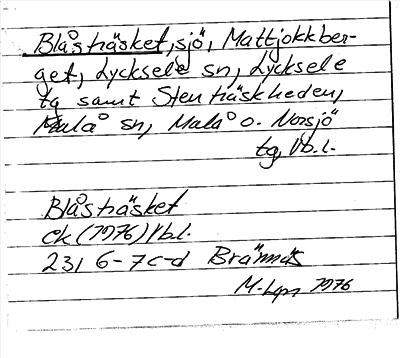 Blåsträsket, sjö, Mattjokkber-
get, Lycksele sn, Lycksele
tg samt Stenträskheden,
Malå sn, Malå o. Norsjö
tg, Vb.l.
Blåsträsket
ek (1976) Vb.l.
23I 6-7c-d Brännäs
1976